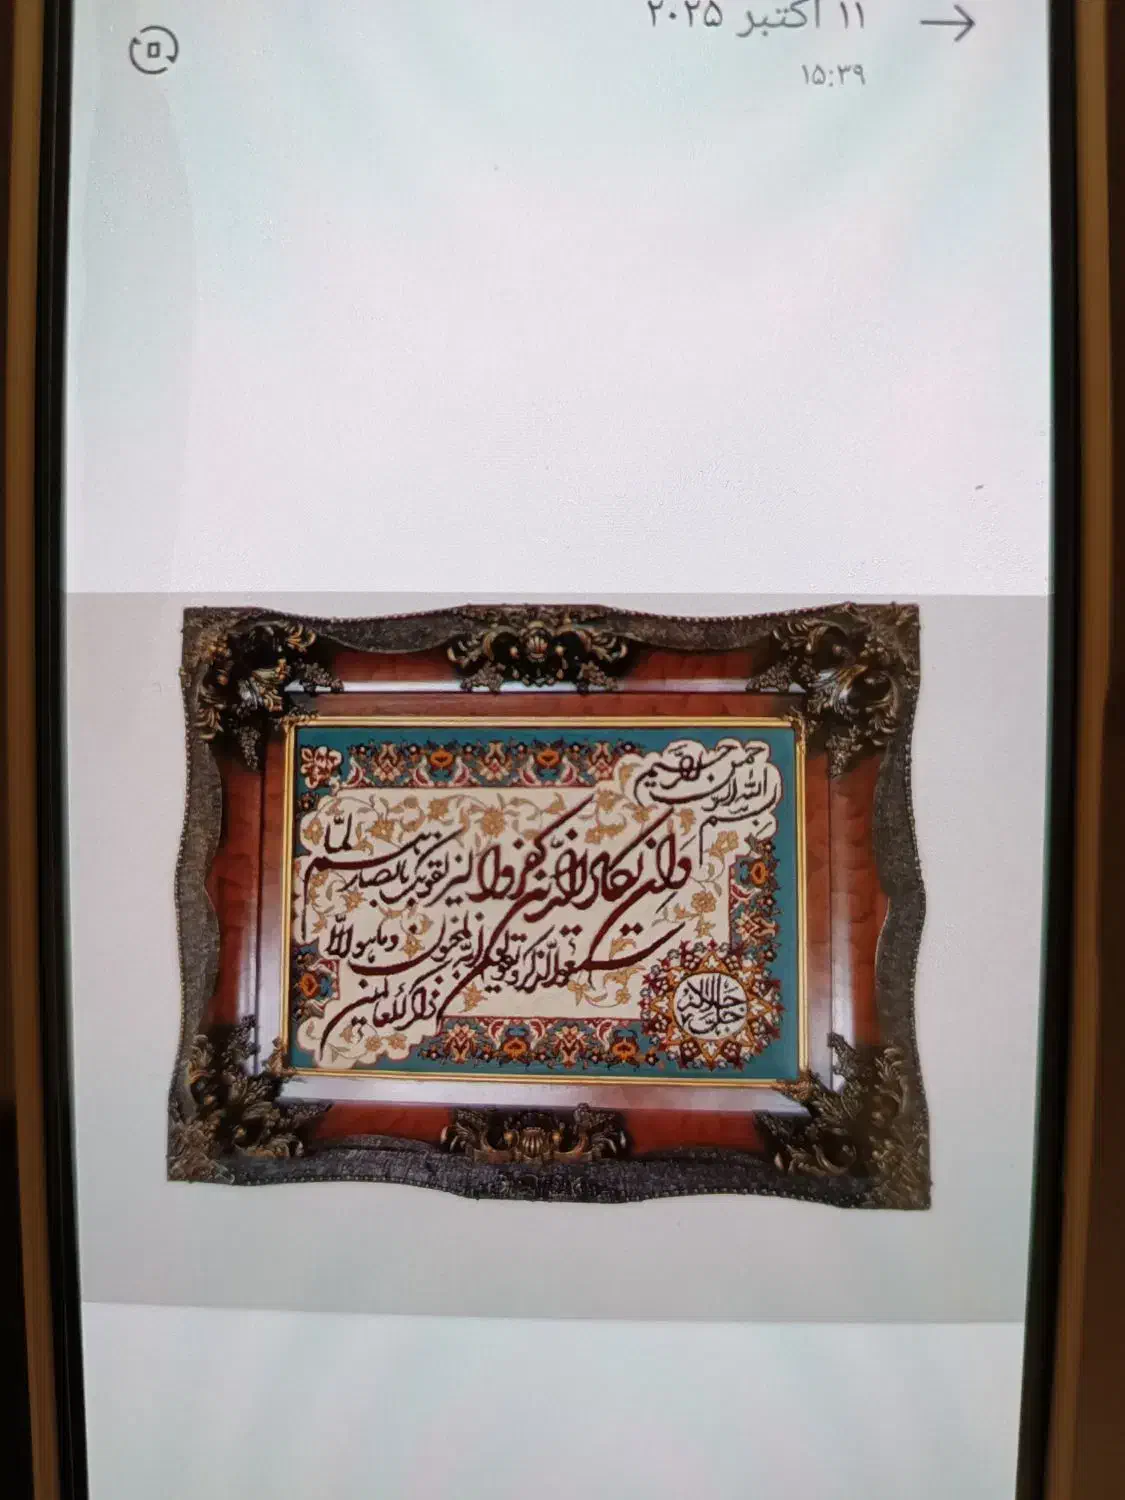 ۱۱ اکتبر ۲۰۲۵
۱۵:۳۹
بسم الله الرحمن الرحیم
وان یکاد الذین کفروا لیزلقونک بابصارهم لما
سمعوا الذکر و یقولون انه لمجنون وما هو الا
ذکر للعالمین
جل جلاله